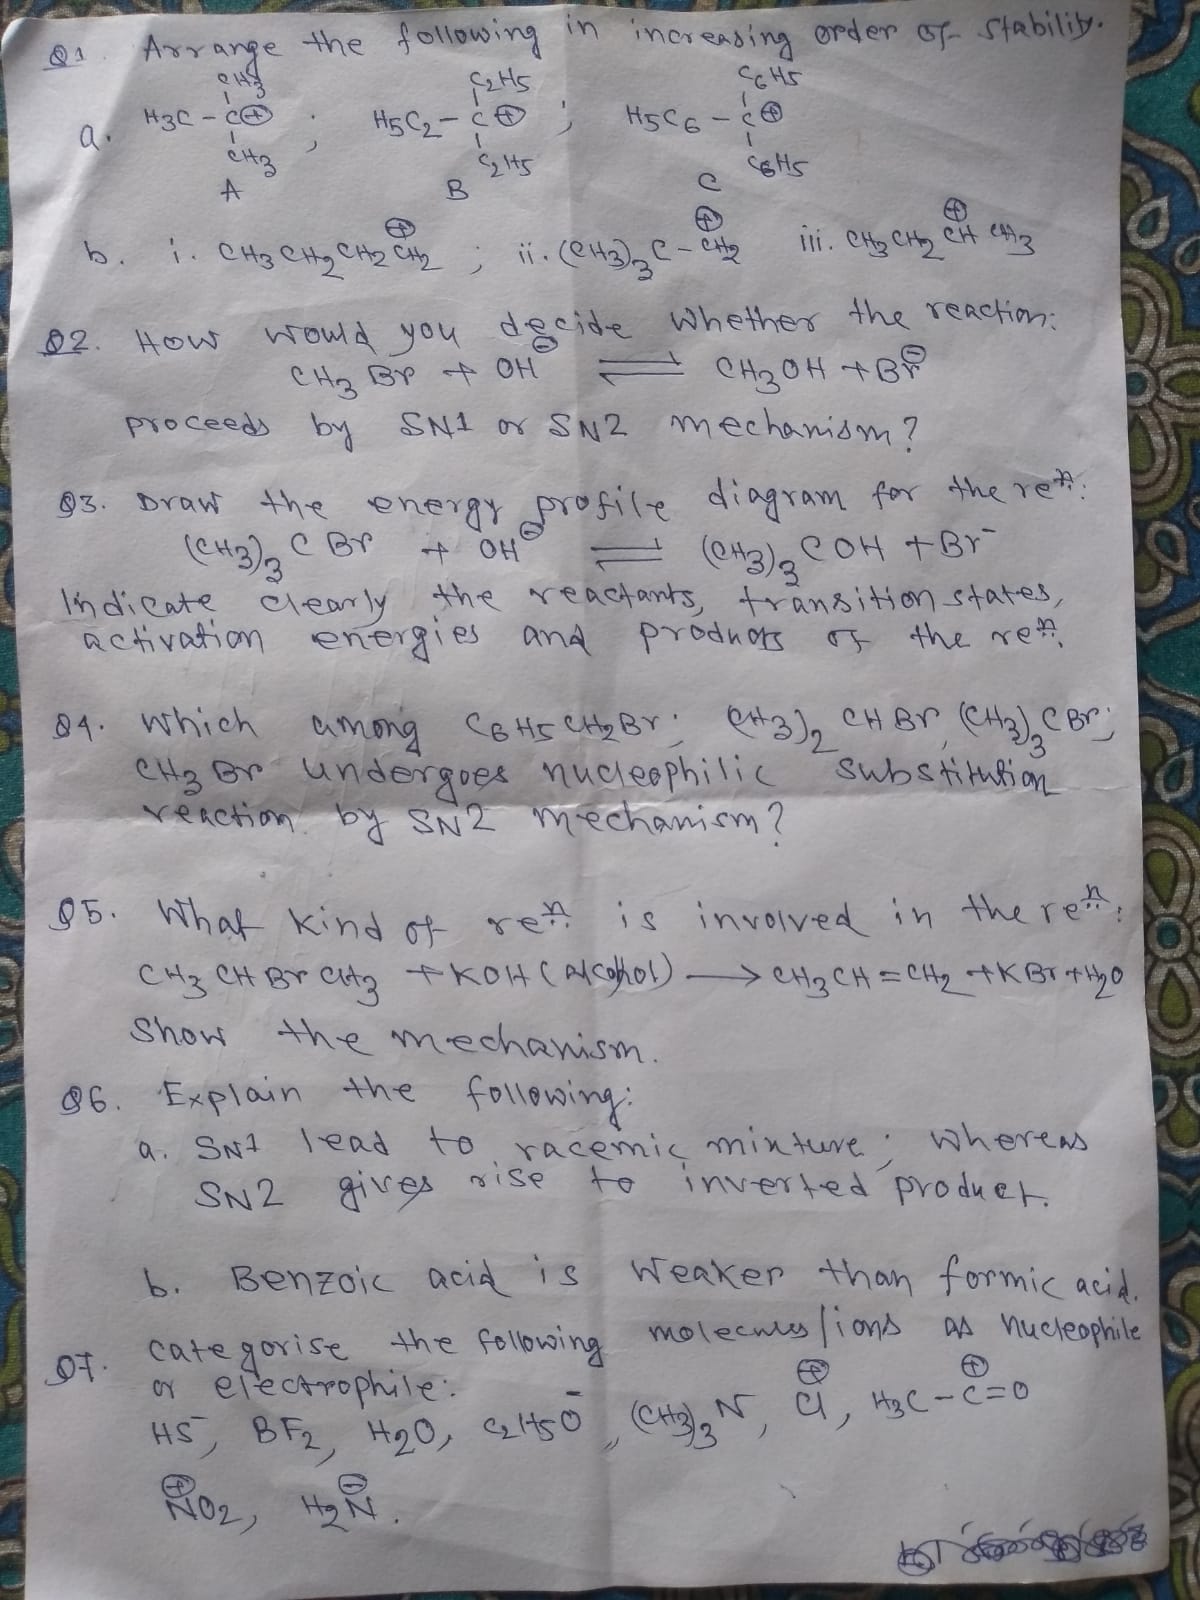 Q1. Arrange the following in increasing order of stability.
CH3 C2H5 C6H5
a. H3C - C⊕ ; H5C2 - C⊕ ; H5C6 - C⊕
CH3 C2H5 C6H5
A B C
b. i. CH3CH2CH2CH2⊕ ; ii. (CH3)3C - CH2⊕ iii. CH3CH2CH⊕CH3
Q2. How would you decide whether the reaction:
CH3Br + OH⊖ ⇌ CH3OH + Br⊖
proceeds by SN1 or SN2 mechanism?
Q3. Draw the energy profile diagram for the rexn:
(CH3)3CBr + OH⊖ ⇌ (CH3)3COH + Br-
Indicate clearly the reactants, transition states,
activation energies and products of the rexn.
Q4. Which among C6H5CH2Br; (CH3)2CHBr, (CH3)3CBr;
CH3Br undergoes nucleophilic substitution
reaction by SN2 mechanism?
Q5. What kind of rexn is involved in the rexn:
CH3CHBrCH3 + KOH (Alcohol) → CH3CH=CH2 + KBr + H2O
Show the mechanism.
Q6. Explain the following:
a. SN1 lead to racemic mixture; whereas
SN2 gives rise to inverted product.
b. Benzoic acid is weaker than formic acid.
Q7. Categorise the following molecules/ions as nucleophile
or electrophile:
HS-, BF2, H2O, C2H5O-, (CH3)3N, Cl⊕, H3C-C⊕=O
⊕NO2, H2N⊖.